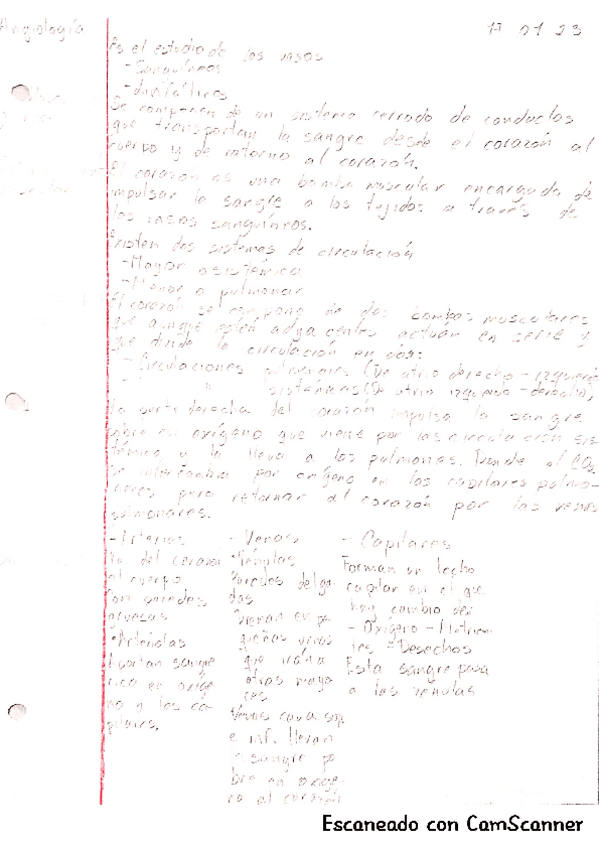 Angiología
17 01 23
Es el estudio de los vasos
- Sanguíneos
- Linfáticos
Se componen de un sistema cerrado de conductos
que transportan la sangre desde el corazón al
cuerpo y de retorno al corazón.
El corazón es una bomba muscular encargada de
impulsar la sangre a los tejidos a través de
los vasos sanguíneos.
Existen dos sistemas de circulación
- Mayor o sistémica
- Menor o pulmonar
El corazón se compone de dos bombas musculares
que aunque estén adyacentes actúan en serie y
que divide la circulación en dos:
- Circulaciones pulmonares (De atrio derecho - izquierdo
- " sistémicas (De atrio izquierdo - derecho)
La parte derecha del corazón impulsa la sangre
pobre en oxígeno que viene por las circulación sis-
témica y la lleva a los pulmones. Donde el CO2
se intercambia por oxígeno en los capilares pulmo-
nares para retornar al corazón por las venas
pulmonares.
- Arterias
Va del corazón
al cuerpo
Con paredes
gruesas
• Arteriolas
Aportan sangre
rica en oxíge
no y los ca-
pilares.
- Venas
• Vénulas
Paredes delga-
das
Drenan en pe
queñas venas
que irán a
otras mayo
res
Venas cava sup
e inf. llevan
la sangre po
bre en oxíge-
no al corazón
- Capilares
Forman un lecho
capilar en el que
hay cambio de:
- Oxígeno - Nutrien
tes - Desechos
Esta sangre pasa
a las vénulas
Escaneado con CamScanner